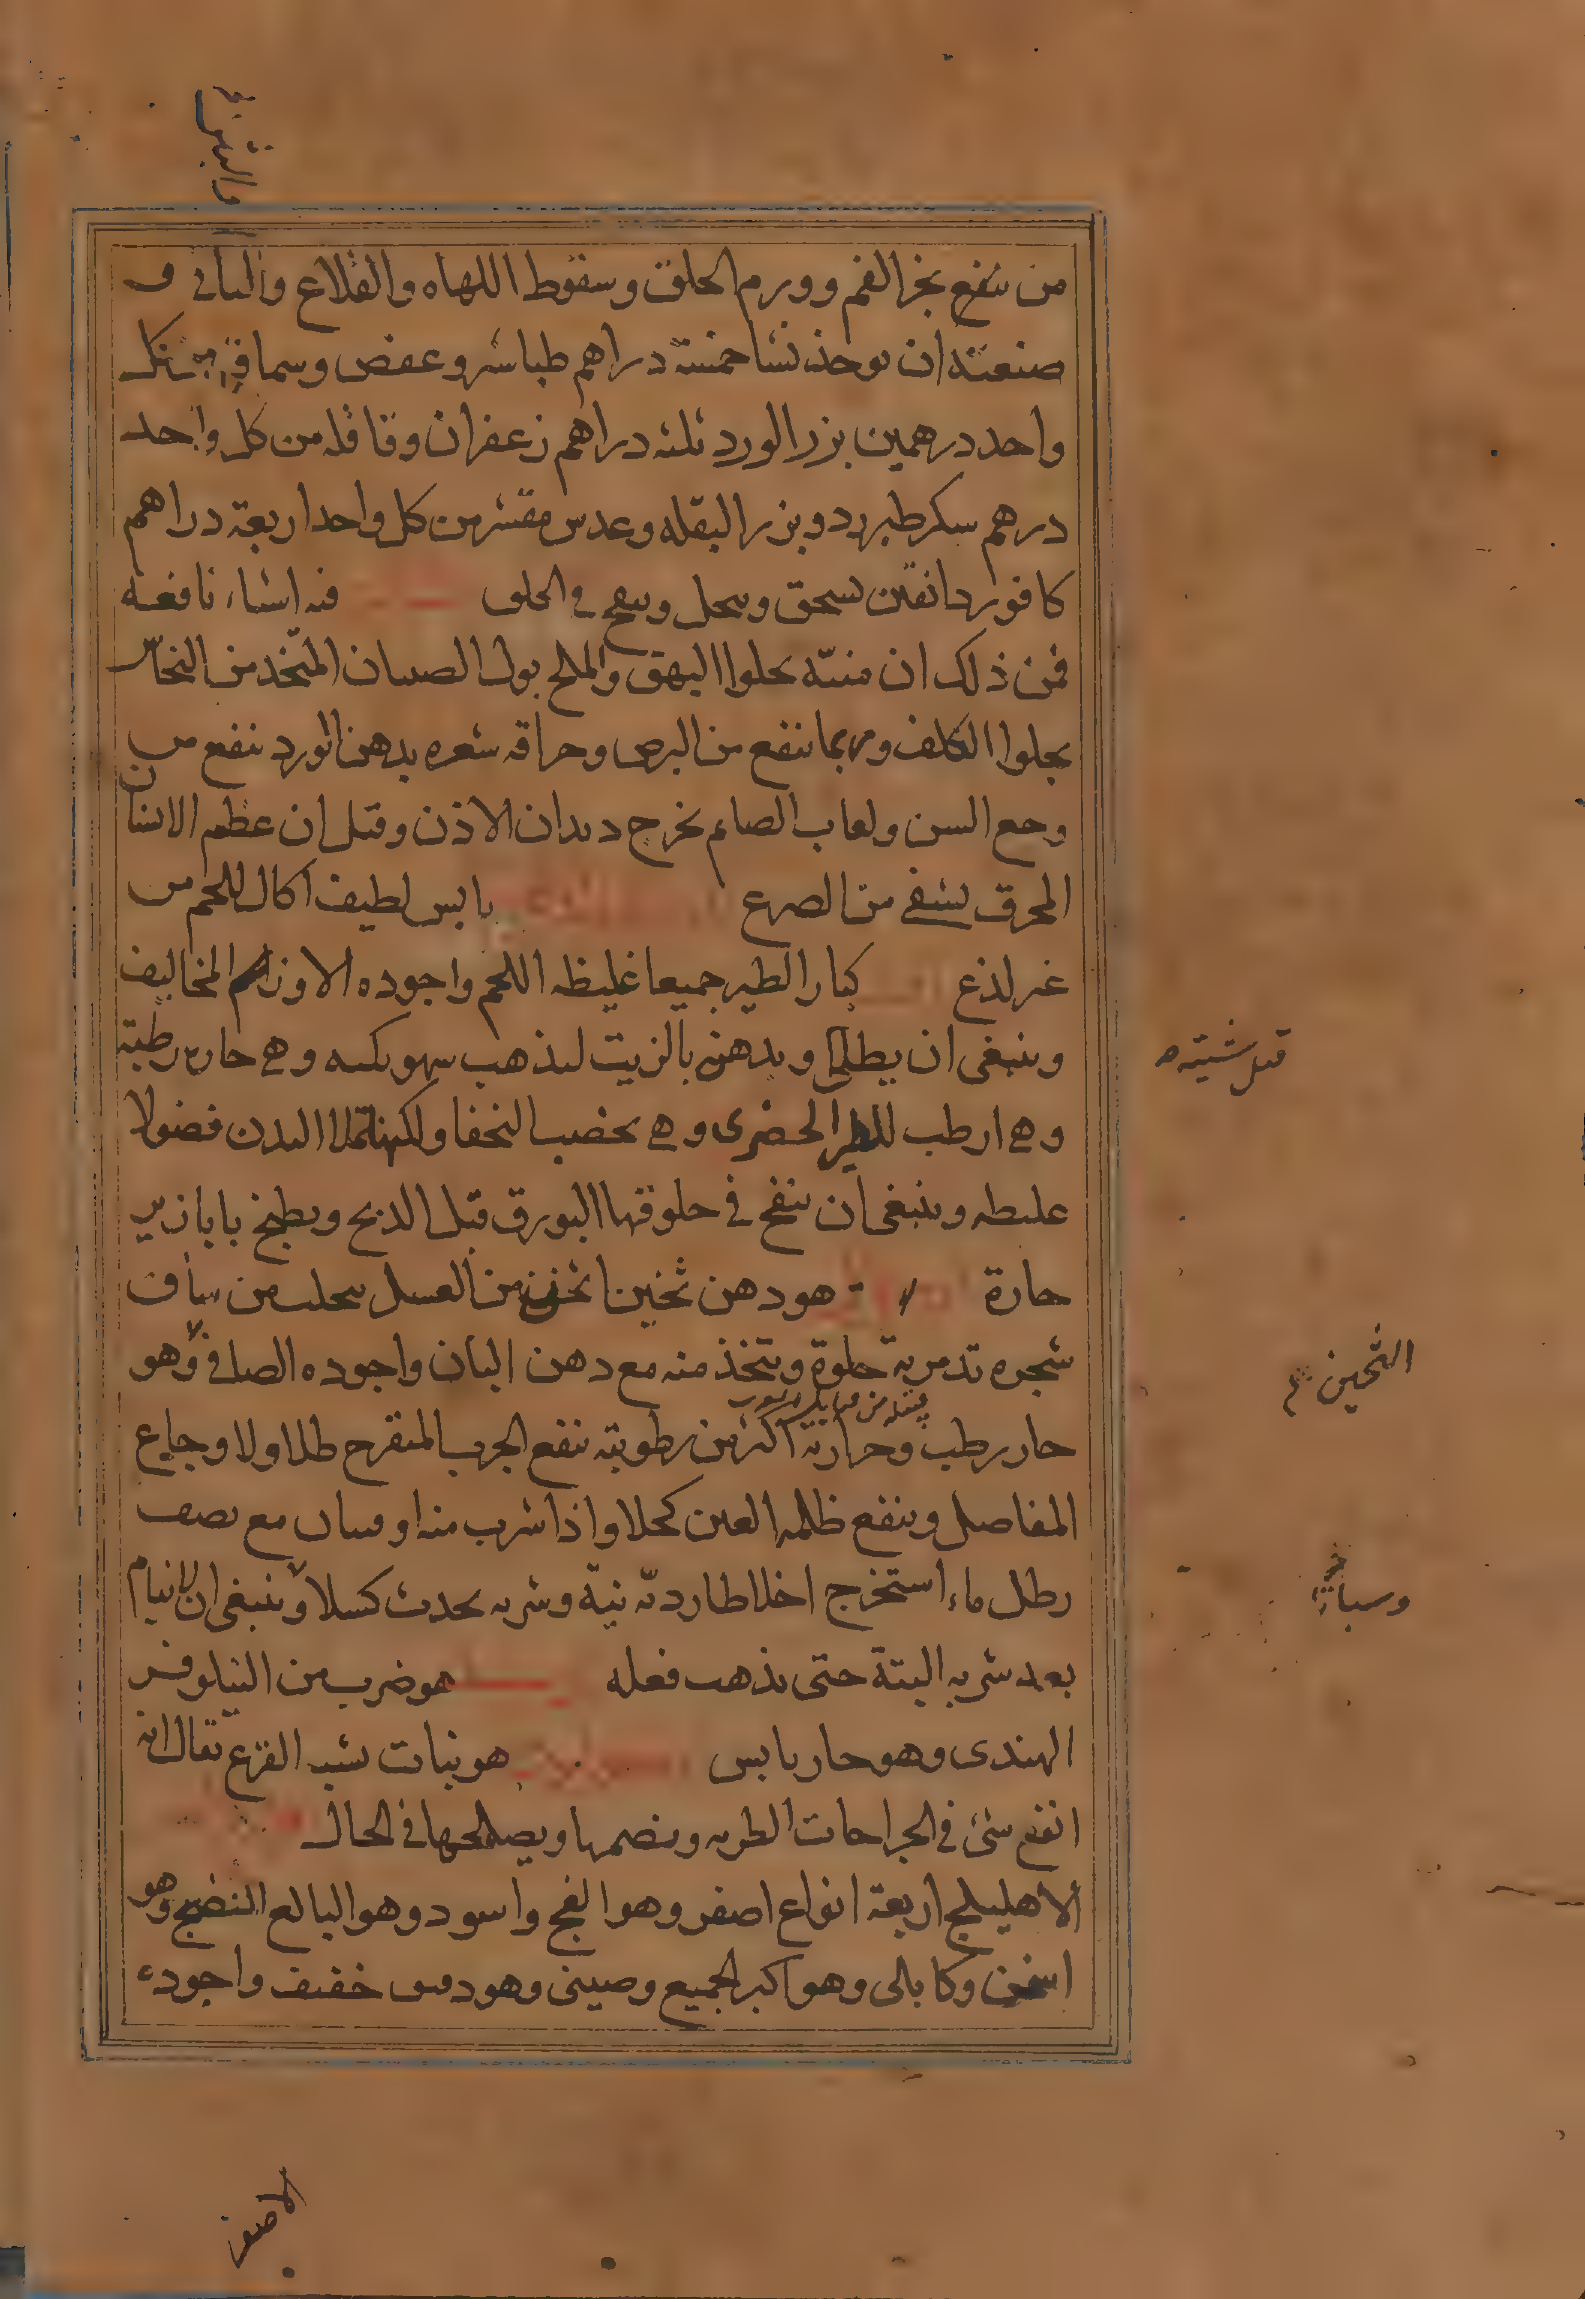 من ينفع بخر الفم وورم الحلق وسقوط اللهاه والقلاع والباني و
صنعته ان يوخذ نشا خمسة دراهم طباشير وعفص وسماق من كل
واحد درهمين بزر الورد ثلثه دراهم زعفران وقاقله من كل واحد
درهم سكر طبرزد وبزر البقله وعدس مقشر من كل واحد اربعة دراهم
كافور دانقين يسحق وينخل وينفخ في الحلق فيه اشياء نافعة
فمن ذلك ان منيّه يجلوا البهق والملح بول الصبيان المتخذ من النحاس
يجلوا الكلف وربما ينفع من البرص وحراقه شعره بدهن الورد ينفع من
وجع السن ولعاب الصايم يخرج ديدان الاذن وقيل ان عظم الانسان
المحرق يشفي من الصرع يابس لطيف اكال للحم من
غير لذع كبار الطير جميعا غليظه اللحم واجوده الاوز المخاليف
وينبغى ان يطلى ويدهن بالزيت ليذهب سهوكته وهي حاره رطبة
قبل شيته
وهي ارطب للطير الحضرى وهي يخصب النحفا ولكنها تملا البدن فضولا
غليظه وينبغى ان ينفخ في حلوقها البورق قبل الذبح ويطبخ بابازير
حارة هو دهن ثخين اثخن من العسل يتحلب من ساق
شجره تدمرية حلوة ويتخذ منه مع دهن البان واجوده الصافي وهو
الثخين
حار رطب وحرارته اكثر من رطوبته ينفع الجرب المتقرح طلا ولاوجاع
المفاصل وينفع ظلمه العين كحلا واذا شرب منه اوقيتان مع نصف
رطل ماء استخرج اخلاطا رديّه نيّة وشربه يحدث كسلا وينبغى ان لا ينام
وسباتا
بعد شربه البتة حتى يذهب فعله هو ضرب من النيلوفر
الهندى وهو حار يابس هو نبات يشبه القرع يقال انه
انفع شئ في الجراحات الطريه ويضمها ويصلحها في الحال
الاهليلج اربعة انواع اصفر وهو الفج واسود وهو البالغ النضيج وهو
اسمن وكابلى وهو اكبر الجميع وصينى وهو دقيق خفيف واجوده
الاصفر